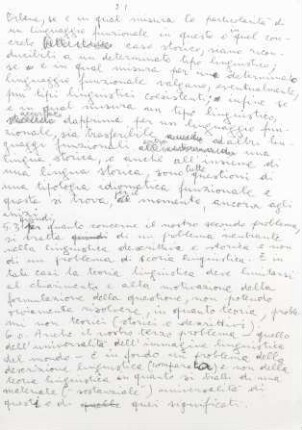 31
Orbene, se e in qual misura le particolarità di
un linguaggio funzionale in questo o quel con-
creto caso storico, siano ricon-
ducibili a un determinato tipo linguistico,
se e in qual misura per un determinato
linguaggio funzionale valgano, eventualmente,
più tipi linguistici coesistenti; infine se
e in qual misura un tipo linguistico,
dapprima per un linguaggio fun-
zionale, sia trasferibile ad altri lin-
guaggi funzionali una
lingua storica, e anche all'insieme di
una lingua storica, sono tutte questioni di
una tipologia idiomatica funzionale e
questa si trova, per al momento, ancora agli
inizi.
5.3. Per quanto concerne il nostro secondo problema,
si tratta di un problema rientrante
nella linguistica descrittiva e storica e non
di un problema di teoria linguistica. E in
tale casi la teoria linguistica deve limitarsi
al chiarimento e alla motivazione della
formulazione della questione, non potendo
ovviamente risolvere, in quanto teoria, proble-
mi non teorici (storici e descrittivi).
6.0. Anche il nostro terzo problema - quello
dell'universalità dell'immagine linguistica
del mondo - è in fondo un problema della
descrizione linguistica (comparata) e non della
teoria linguistica in quanto si tratti di una
materiale ("sostanziale") universalità di
questi e di quei significati.